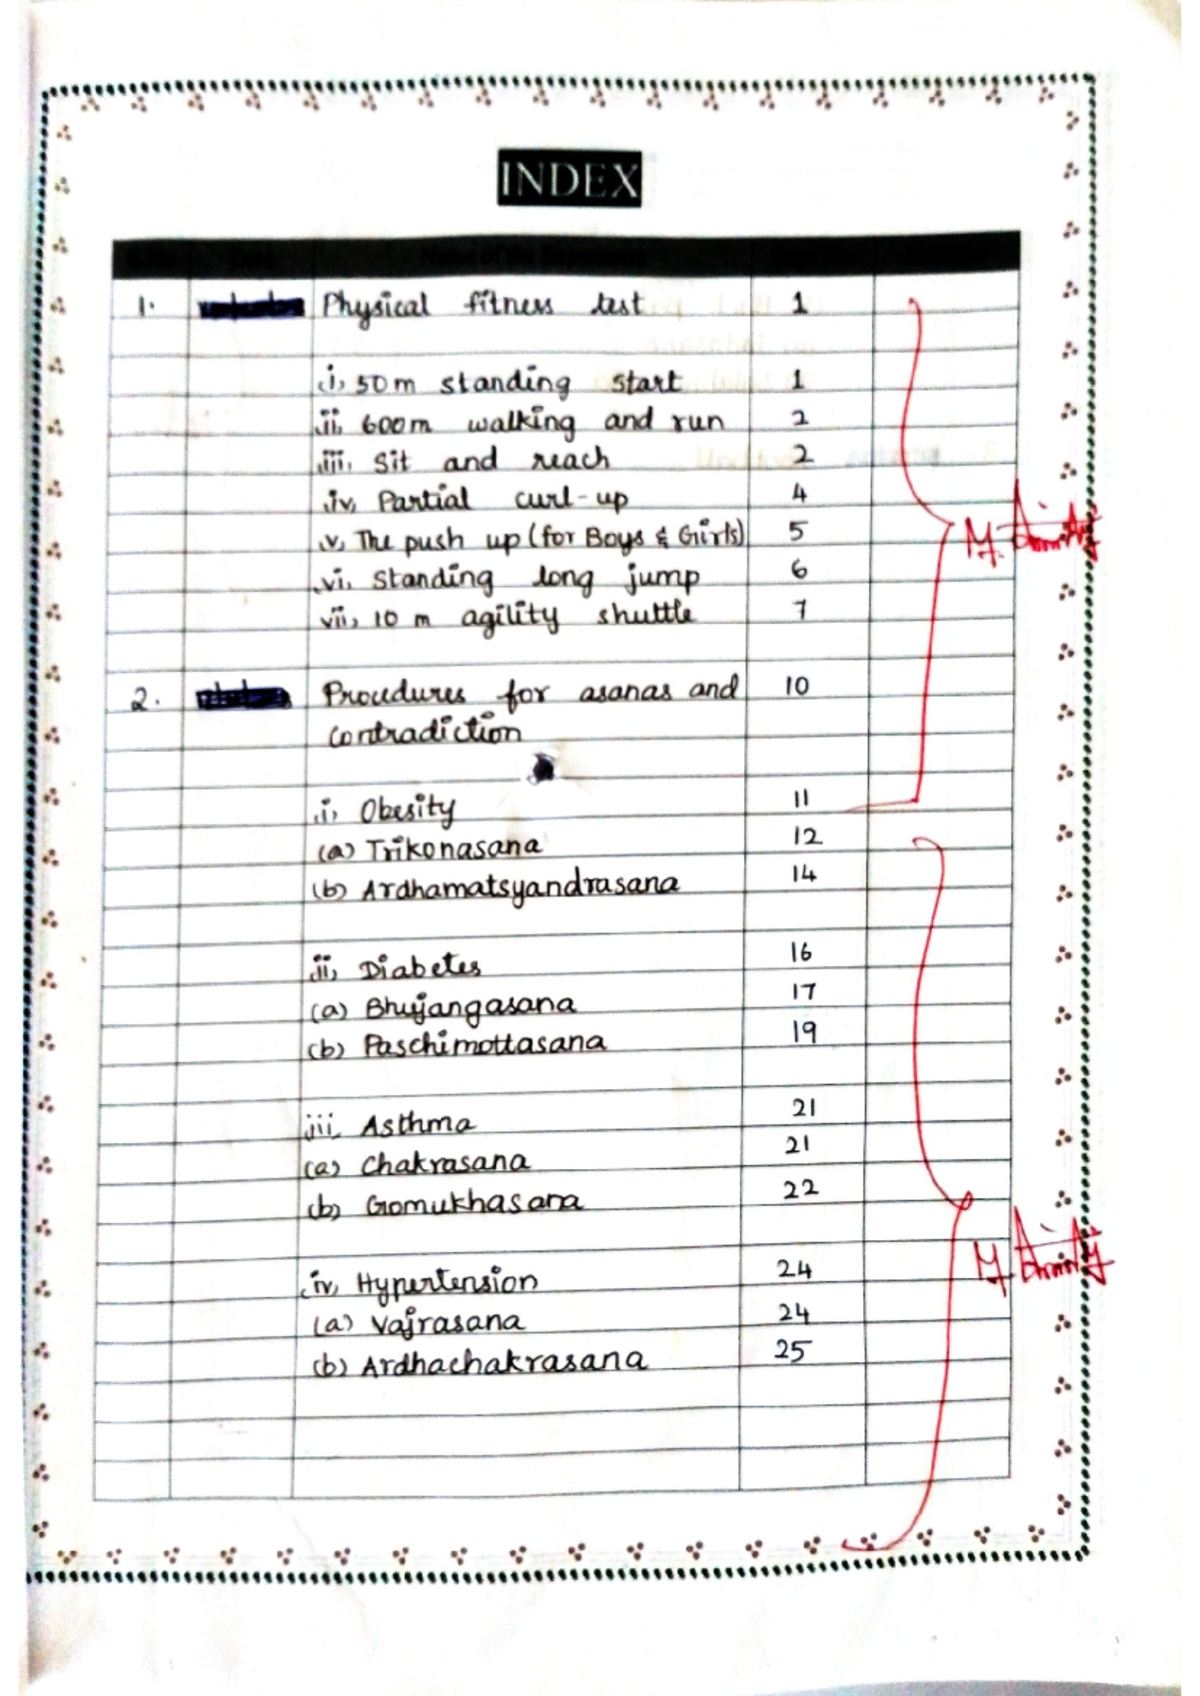 INDEX
S.No Date Name of the Experiment
1. Physical fitness test 1
i, 50m standing start 1
ii, 600m walking and run 2
iii, Sit and reach 2
iv, Partial curl-up 4
v, The push up (for Boys & Girls) 5
vi, Standing long jump 6
vii, 10 m agility shuttle 7
2. Procedures for asanas and 10
contradiction
i, Obesity 11
(a) Trikonasana 12
(b) Ardhamatsyandrasana 14
ii, Diabetes 16
(a) Bhujangasana 17
(b) Paschimottasana 19
iii, Asthma 21
(a) Chakrasana 21
(b) Gomukhasana 22
iv, Hypertension 24
(a) Vajrasana 24
(b) Ardhachakrasana 25